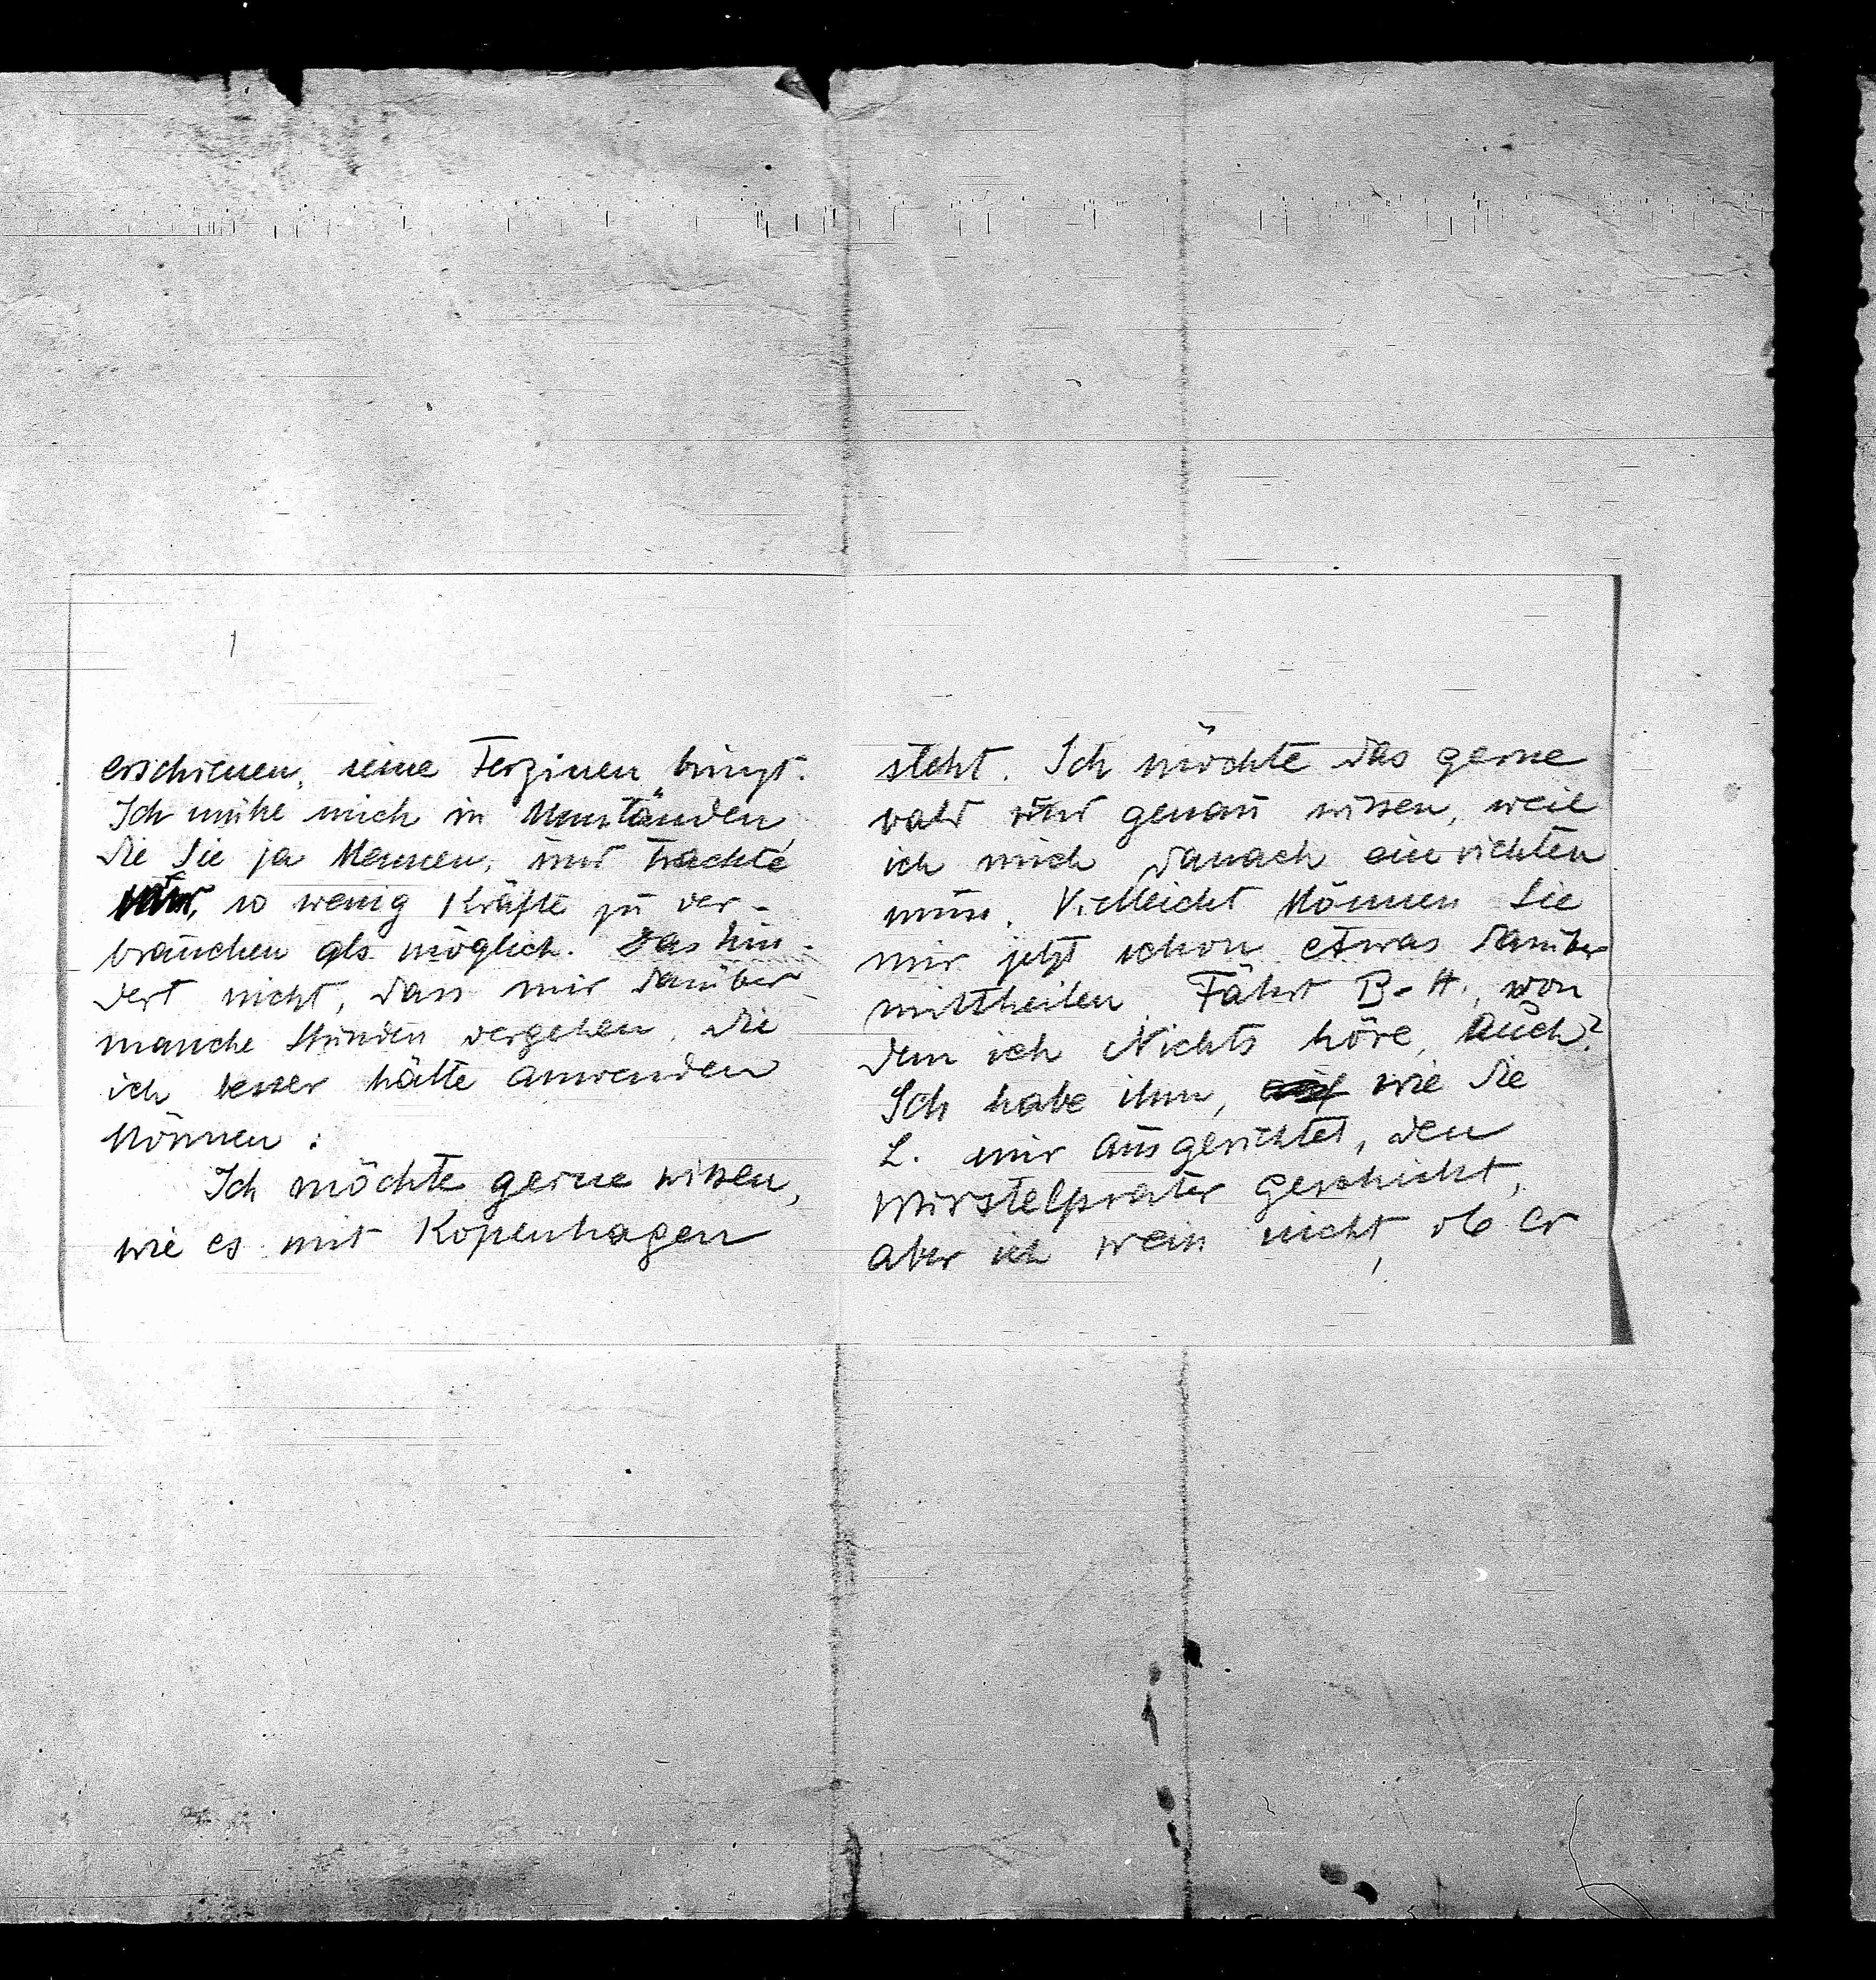 erschienen, seine Terzinen bringt.
Ich mühe mich in Umständen,
die Sie ja kennen, und trachte
so wenig Kräfte zu ver-
brauchen als möglich. Das hin-
dert nicht, dass mir darüber
manche Stunden vergehen, die
ich besser hätte anwenden
können.
Ich möchte gerne wissen,
wie es mit Kopenhagen
steht. Ich möchte das gerne
bald und genau wissen, weil
ich mich danach einrichten
muss. Vielleicht können Sie
mir jetzt schon etwas darüber
mittheilen. Fährt B-H., von
dem ich Nichts höre, auch?
Ich habe ihm, wie Sie
L. mir ausgerichtet, den
Wurstelprater geschickt,
aber ich weiss nicht, ob er